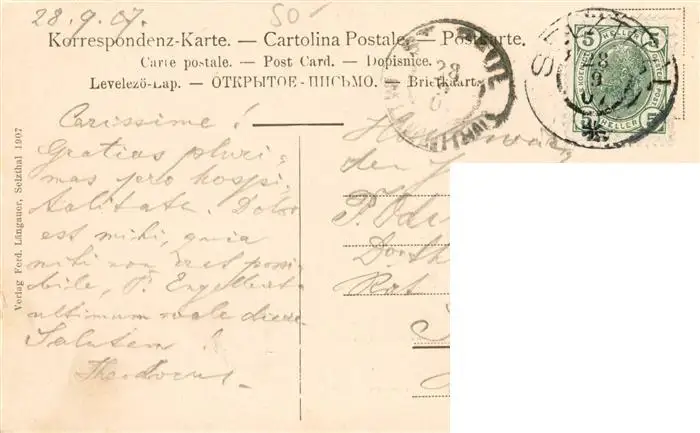 28.9.07.
50
Korrespondenz-Karte. — Cartolina Postale. — Postkarte.
Carte postale. — Post Card. — Dopisnice.
Levelező-Lap. — ОТКРЫТОЕ-ПИСЬМО. — Briefkaart.
5 HELLER 5
28
9
HELLER
28
Carissime!
Gratias pluri-
mas pro hospi-
talitate. Dolor
est mihi, quia
mihi non erat possi-
bile, P. Engelbert
ultimum vale dicere
Salutem!
Theodorus
P. Odi
Verlag Ferd. Längauer, Selzthal 1907